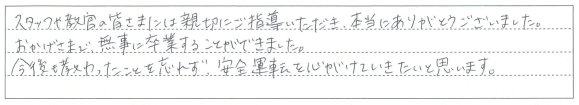 スタッフや教官の皆さまには親切にご指導いただき、本当にありがとうございました。
おかげさまで、無事に卒業することができました。
今後も教わったことを忘れず、安全運転を心がけていきたいと思います。